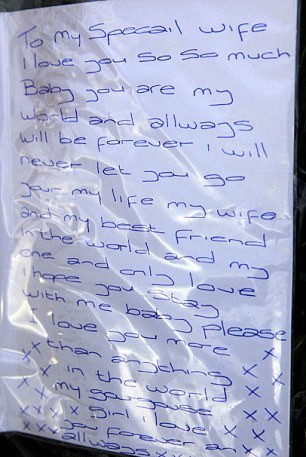 To my Specail wife
I love you so so much
Baby you are my
world and allways
will be forever I will
never let you go
your my life my wife
and my best friend
in the world and my
one and only love
I hope you stay
with me baby please
I love you more
x than anything x
x x in the world x
x x my gourgouse x x
x x x x girl I love x x x
x x x you forever an x x
allways x x x x